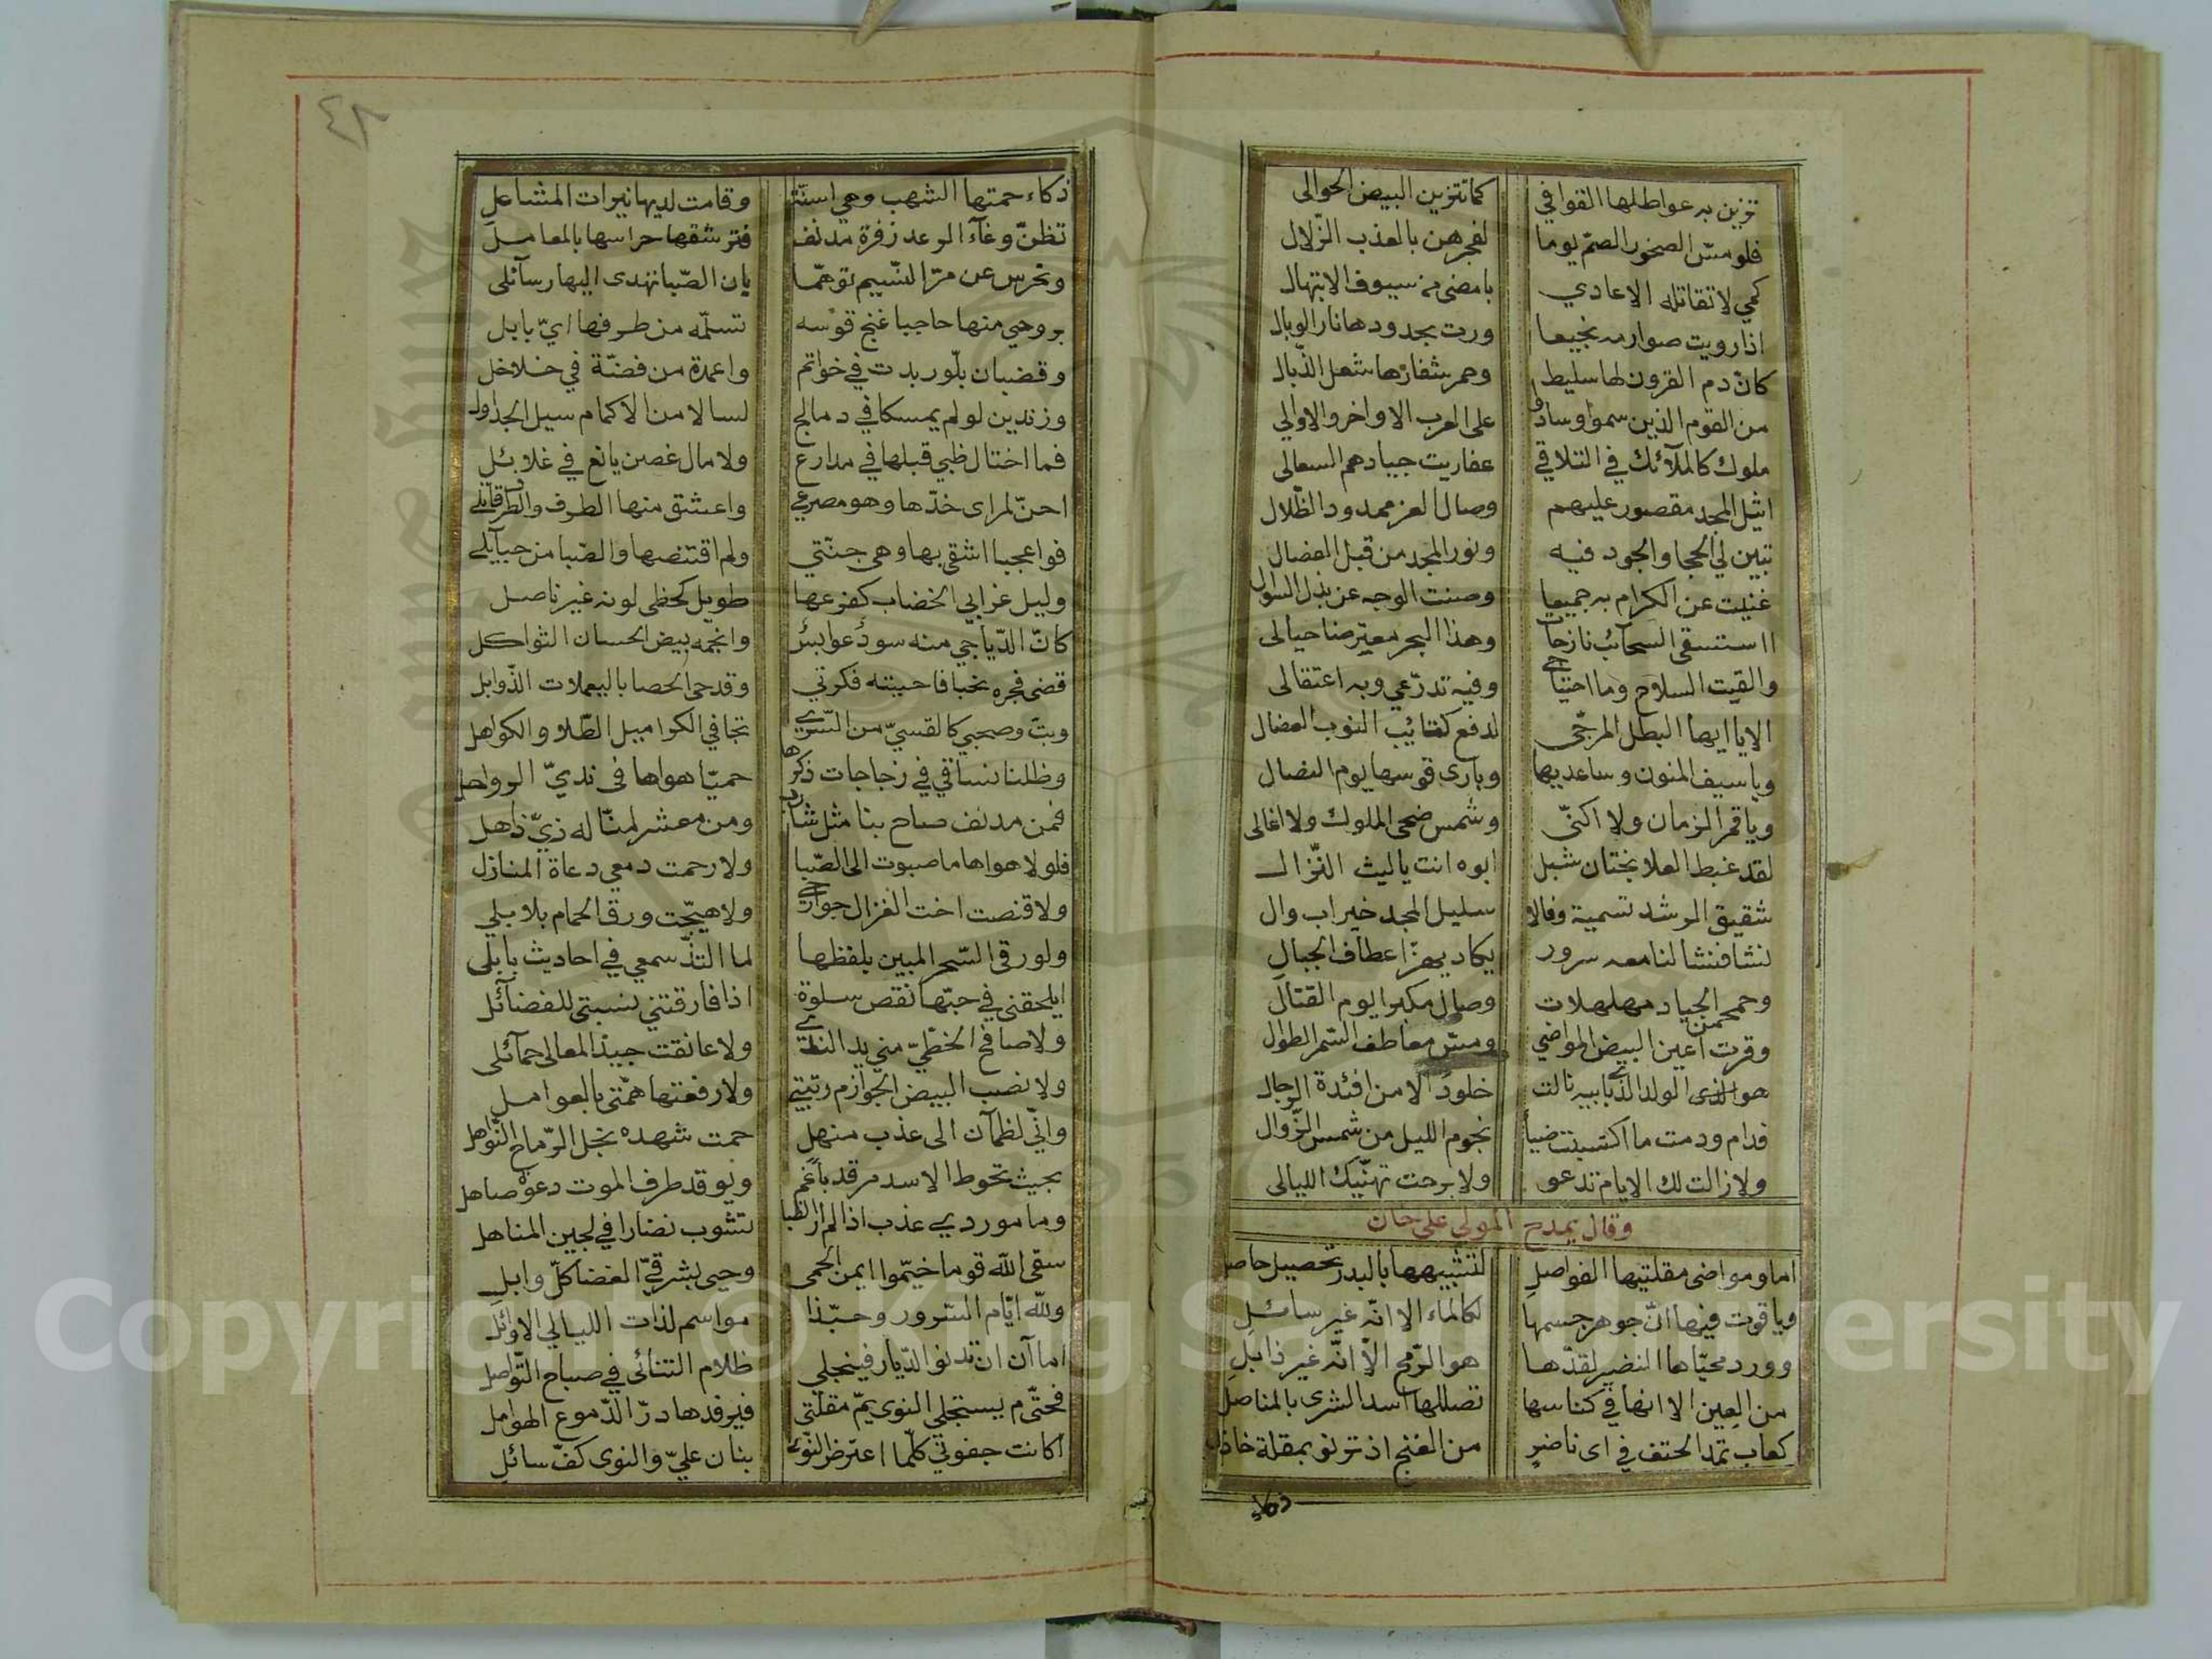 تزين به عواطلها القوافي كما تتزين البيض الحوالى
فلو مسّ الصخور الصمّ يوما لفجرهن بالعذب الزّلال
كمي لا تقاتله الاعادي بامضى من سيوف الابتهال
اذا رويت صوارمه نجيعا ورت بحدودها نار الوبال
كانّ دم القرون لها سليط وحمر شفارها شعل الذّبال
من القوم الذين سموا وسادوا على العرب الاواخر والاوالي
ملوك كالملآئك في التلاقي عفاريت جيادهم السعالى
اثيل المجد مقصور عليهم وصال العز ممدود الظّلال
تبين لي الحجا والجود فيه ونور المجد من قبل الفصال
غنيت عن الكرام به جميعا وصنت الوجه عن بذل السوال
ا استسقى السحائب نازحات وهذا البحر معترضا حيالى
والقيت السلاح وما احتياجي وفيه تدرّعي وبه اعتقالى
الا يا ايها البطل المرجّى لدفع كتائب النوب العضال
ويا سيف المنون وساعديها وبارى قوسها يوم النضال
ويا قمر الزمان ولا اكنّي وشمس ضحى الملوك ولا اغالى
لقد غبط العلا بختان شبل ابوه انت يا ليث النّزال
شقيق الرشد تسمية وفالا سليل المجد خير اب وال
نشا فنشا لنا معه سرور يكاد يهزّ اعطاف الجبال
وحمحمن الجياد مهلهلات وصال مكبرا يوم القتال
وقرت اعين البيض المواضي ومسّ معاطف السّمر الطوال
هو الولد الذي بابيه نالت خلودا لامن افئدة الرجال
فدام ودمت ما اكتسبت ضياء نجوم الليل من شمس الزّوال
ولا زالت لك الايام تدعو ولا برحت تهنّيك الليالى
وقال يمدح المولى على خان
اما ومواضى مقلتيها الفواصل لتشبيهها بالبدر تحصيل حاصل
وياقوت فيها انّ جوهر جسمها لكالماء الا انّه غير سائل
وورد محيّاها النضير لقدّها هو الرّمح الاّ انّه غير ذابل
من العين الا انها في كناسها تصللها اسد الشرى بالمناصل
كعاب تمد الحتف في اى ناضر من الغنج اذ ترنو بمقلة خاذل
ذكاء
٤٨
ذكاء حمتها الشهب وهي اسنّة وقامت لديها نيرات المشاعل
تظنّ وغآء الرعد زفرة مدنف فترشقها حراسها بالمعامل
وتحرس عن مرّ النسيم توهّما بان الصّبا تهدى اليها رسآئلى
بروحي منها حاجبا غنج قوسه تسلّمه من طرفها ايّ بابل
وقضبان بلّور بدت في خواتم واعمدة من فضّة في خلاخل
وزندين لو لم يمسكا في دمالج لسالا من الاكمام سيل الجداول
فما اختال ظبي قبلها في مدارع ولا مال غصن يانع في غلائل
احنّ لمراى خدّها وهو مصرعي واعشق منها الطرف والطرف قاتلي
فوا عجبا اشقى بها وهى جنّتي ولم اقتنصها والصّبا من حبآيلي
وليل غرابي الخضاب كفرعها طويل كحظى لونه غير ناصل
كانّ الدّياجي منه سودٌ عوابس وانجمه بيض الحسان الثواكل
قضى فجره نحبا فاحيته فكرتي وقد حى الحصا باليعملات الذّوابل
وبتّ وصحبي كالقسيّ من السّرى تجافي الكرا ميل الطّلا والكواهل
وظلنا نساقي في زجاجات ذكرها حميّا هواها فى نديّ الرواحل
فمن مدنف صاح بنا مثل شارب ومن معشر لمنّا له زيّ ذاهل
فلولا هواها ما صبوت الى الصّبا ولا رحمت دمعي دعاة المنازل
ولا قنصت اخت الغزال جوارحي ولا هيّجت ورق الحمام بلابلي
ولو رقى السّحر المبين بلفظها لما التذّ سمعي في احاديث بابلى
ايلحقنى في حبّها نقص سلوة اذا فارقتني نسبتى للفضآئل
ولا صافح الخطّيّ مني يد الندى ولا عانقت جيد المعالى حمآئلى
ولا نصب البيض الجوازم رتبتي ولا رفعتها همّتى بالعوامل
وانّي لظمآن الى عذب منهل حمت شهده نجل الرّماح النّواهل
بحيث تحوط الاسد مرقد باغم ويوقد طرف الموت دعوة صاهل
وما موردي عذب اذا لم ار الظبا تشوب نضارا في لجين المناهل
سقى الله قوما خيّموا ايمن الحمى وحيى بشرقيّ الغضا كلّ وابل
ولله ايّام السّرور وحبّذا مواسم لذات الليالي الاوائل
اما آن ان تدنو الدّيار فينجلي ظلام التنائى في صباح التّواصل
فحتّى م يستجلي النوى يمّ مقلتى فيرفدها درّ الدّموع الهوامل
اكانت جفوني كلّما اعترض النّوى بنان عليّ والنوى كفّ سائل
Copyright © King Saud University